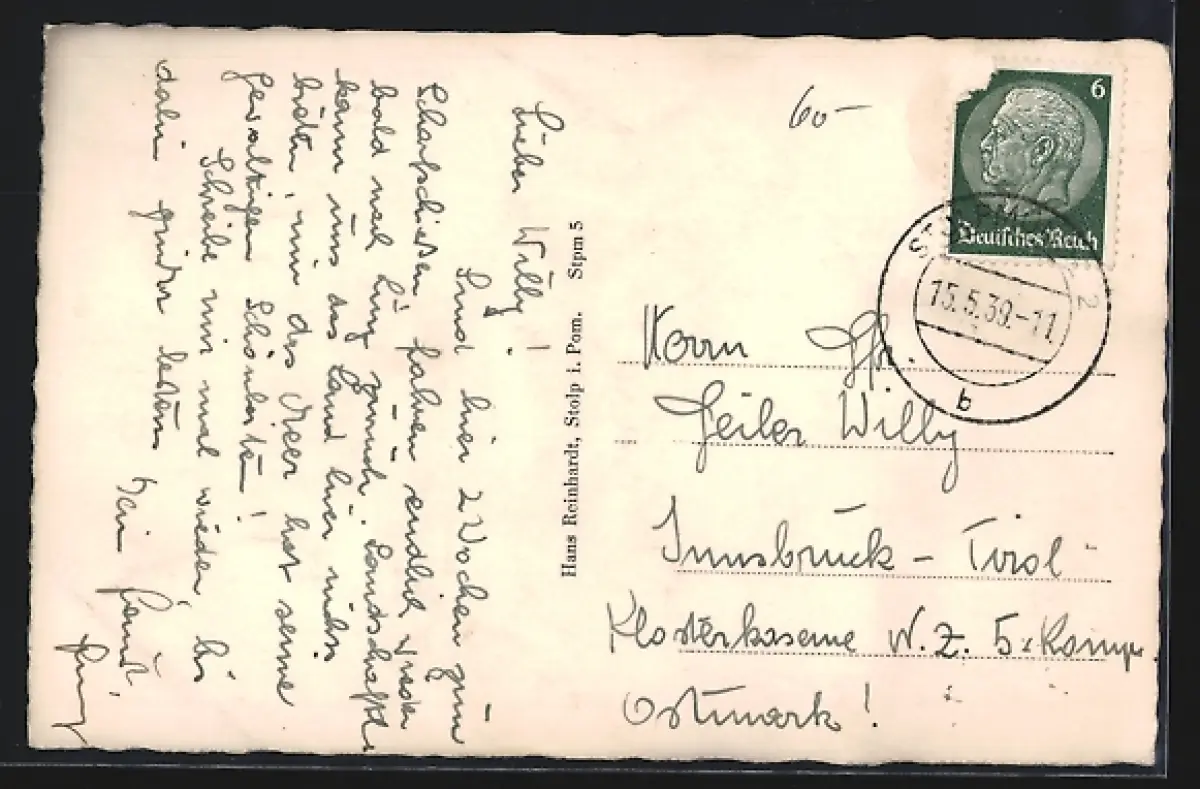 Lieber Willy!
Sind hier 2 Wochen zum
Scharfschießen, fahren endlich wieder
bald nach zurück. Landschaftl.
kann uns das Land hier nichts
bieten, nur das Meer hat seine
gewaltigen Schönheiten!
Schreibe mir mal wieder, bis
dahin grüßt bestens
Dein Freund
Hans Reinhardt, Stolp i. Pom. Stpm 5
60-
6
Deutsches Reich
15.5.39.-11
2
b
Herrn
Geiler Willy
Innsbruck - Tirol
Klosterkaserne N.Z. 5. Komp.
Ostmark!